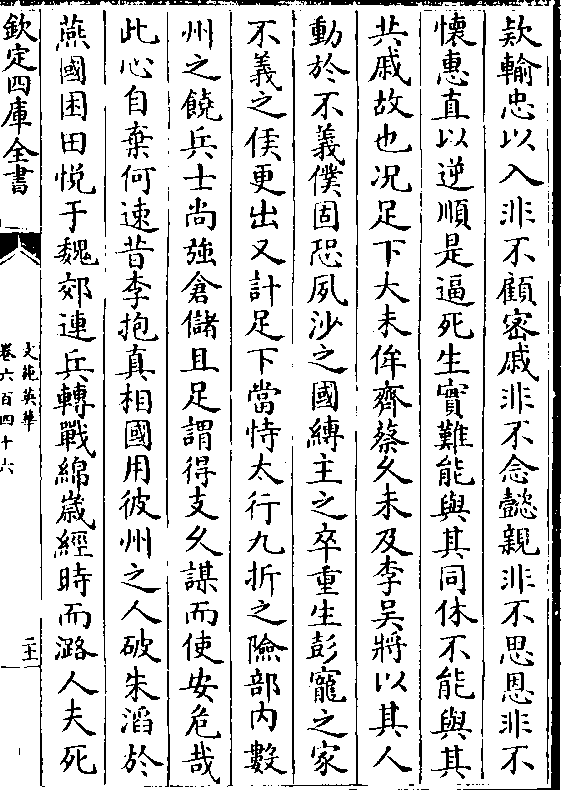 欵輸忠以入非不顧密戚非不念懿親非不思恩非不
懷惠直以逆順是逼死生實難能與其同休不能與其
共戚故也况足下大未侔齊蔡久未及李吳將以其人
動於不義僕固恐夙沙之國縛主之卒重生彭寵之家
不義之侯更出又計足下當恃太行九折之險部内數
州之饒兵士尚強倉儲且足謂得支久謀而使安危哉
此心自棄何速昔李抱真相國用彼州之人破朱滔於
燕國困田悦于魏郊連兵轉戰綿歳經時而潞人夫死
欽定四庫全書
文苑英華
卷六百四十六
二十